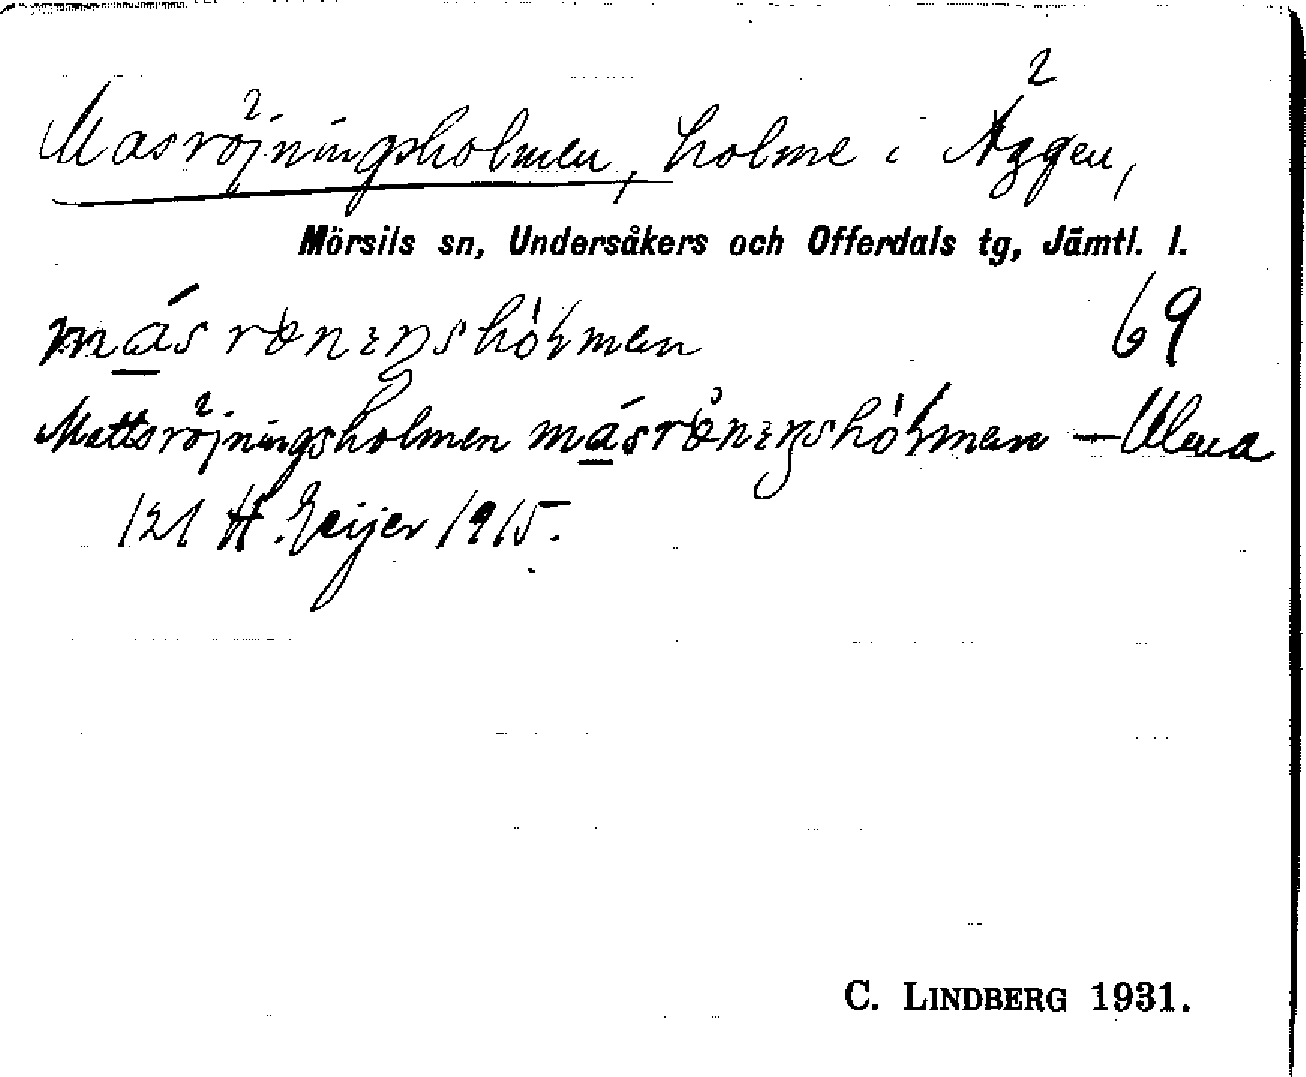 Masröjningsholmen, holme i Äggen,
Mörsils sn, Undersåkers och Offerdals tg, Jämtl. l.
69
Mattsröjningsholmen
121 H. Geijer 1915.
C. LINDBERG 1931.